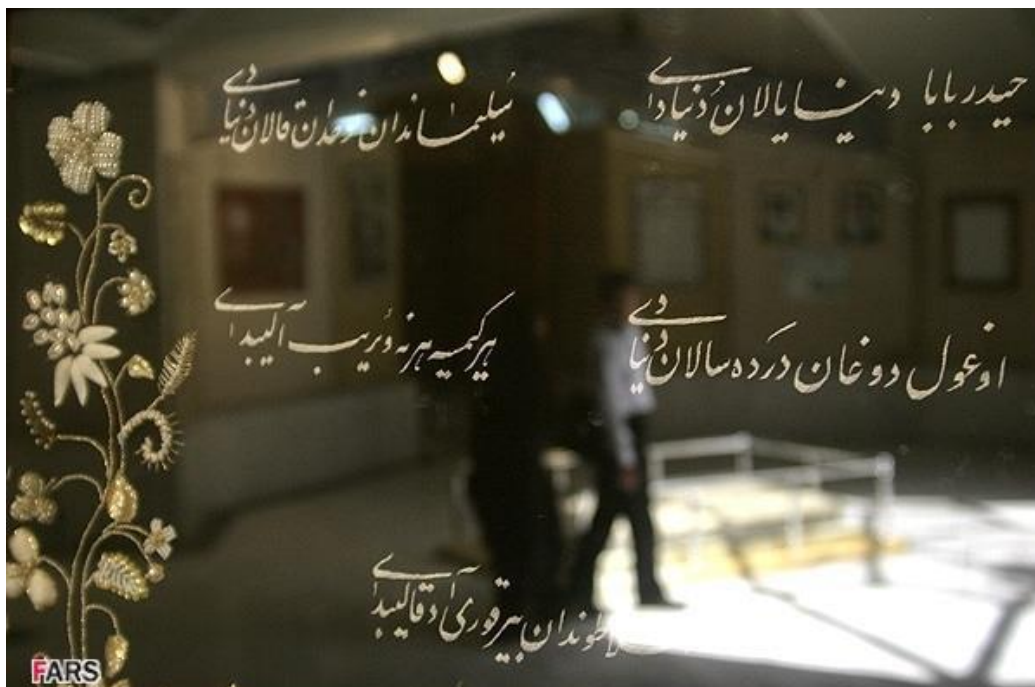 حیدربابا دینیا یالان دُنیادی
سُلیماندان نوحدان قالان دُنیادی
اوغول دوغان دَرده سالان دُنیادی
هر کیمسیه هر نه وُیریب آلیبدی
بیر قوری آد قالیبدی
FARS